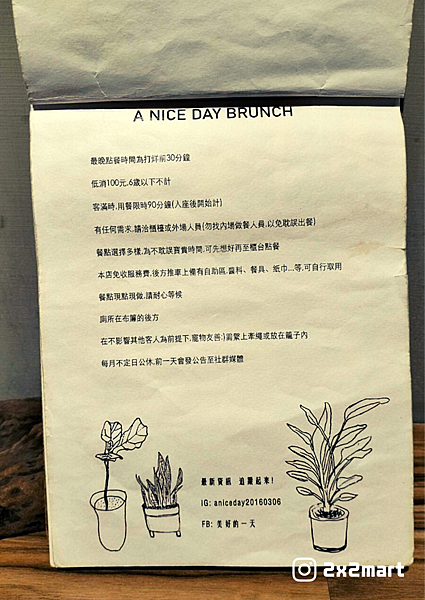 A NICE DAY BRUNCH
最晚點餐時間為打烊前30分鐘
低消100元,6歲以下不計
客滿時,用餐限時90分鐘(入座後開始計)
有任何需求,請洽櫃檯或外場人員(勿找內場做餐人員,以免耽誤出餐)
餐點選擇多樣,為不耽誤寶貴時間,可先想好再至櫃台點餐
本店免收服務費,後方推車上備有自助區,醬料、餐具、紙巾...等,可自行取用
餐點現點現做,請耐心等候
廁所在布簾的後方
在不影響其他客人為前提下,寵物友善:)需繫上牽繩或放在籠子內
每月不定日公休,前一天會發公告至社群媒體
最新資訊 追蹤起來!
IG: aniceday20160306
FB: 美好的一天
2x2mart